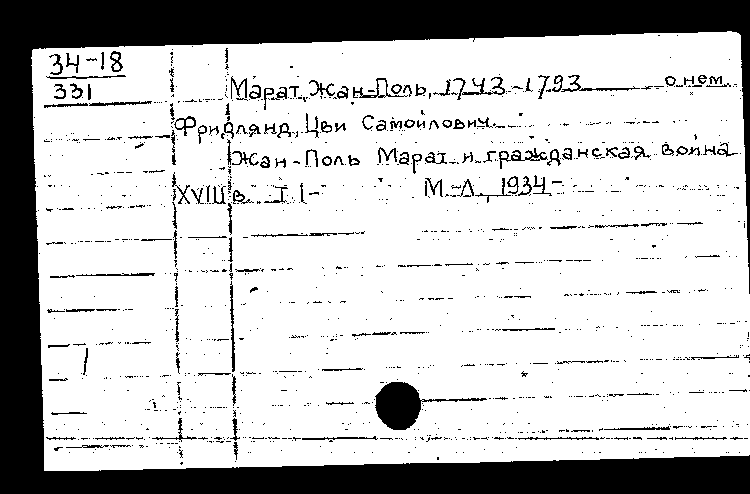 34-18
331
Марат, Жан-Поль, 1743-1793 о нем.
Фридлянд, Цви Самойлович.
Жан-Поль Марат и гражданская война
XVIII в. Т 1- М.-Л., 1934-